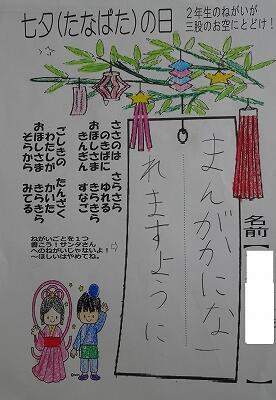 七夕(たなばた)の日
2年生のねがいが
三股のお空にとどけ!
名前【
まんがかにな
れますように
ささのは　さらさら
のきばに　ゆれる
おほしさま　きらきら
きんぎん　すなご
ごしきの　たんざく
わたしが　かいた
おほしさま　きらきら
そらから　みてる
ねがいごとを1つ
書こう!サンタさん
へのねがいじゃないよ!
~ほしいはやめてね。